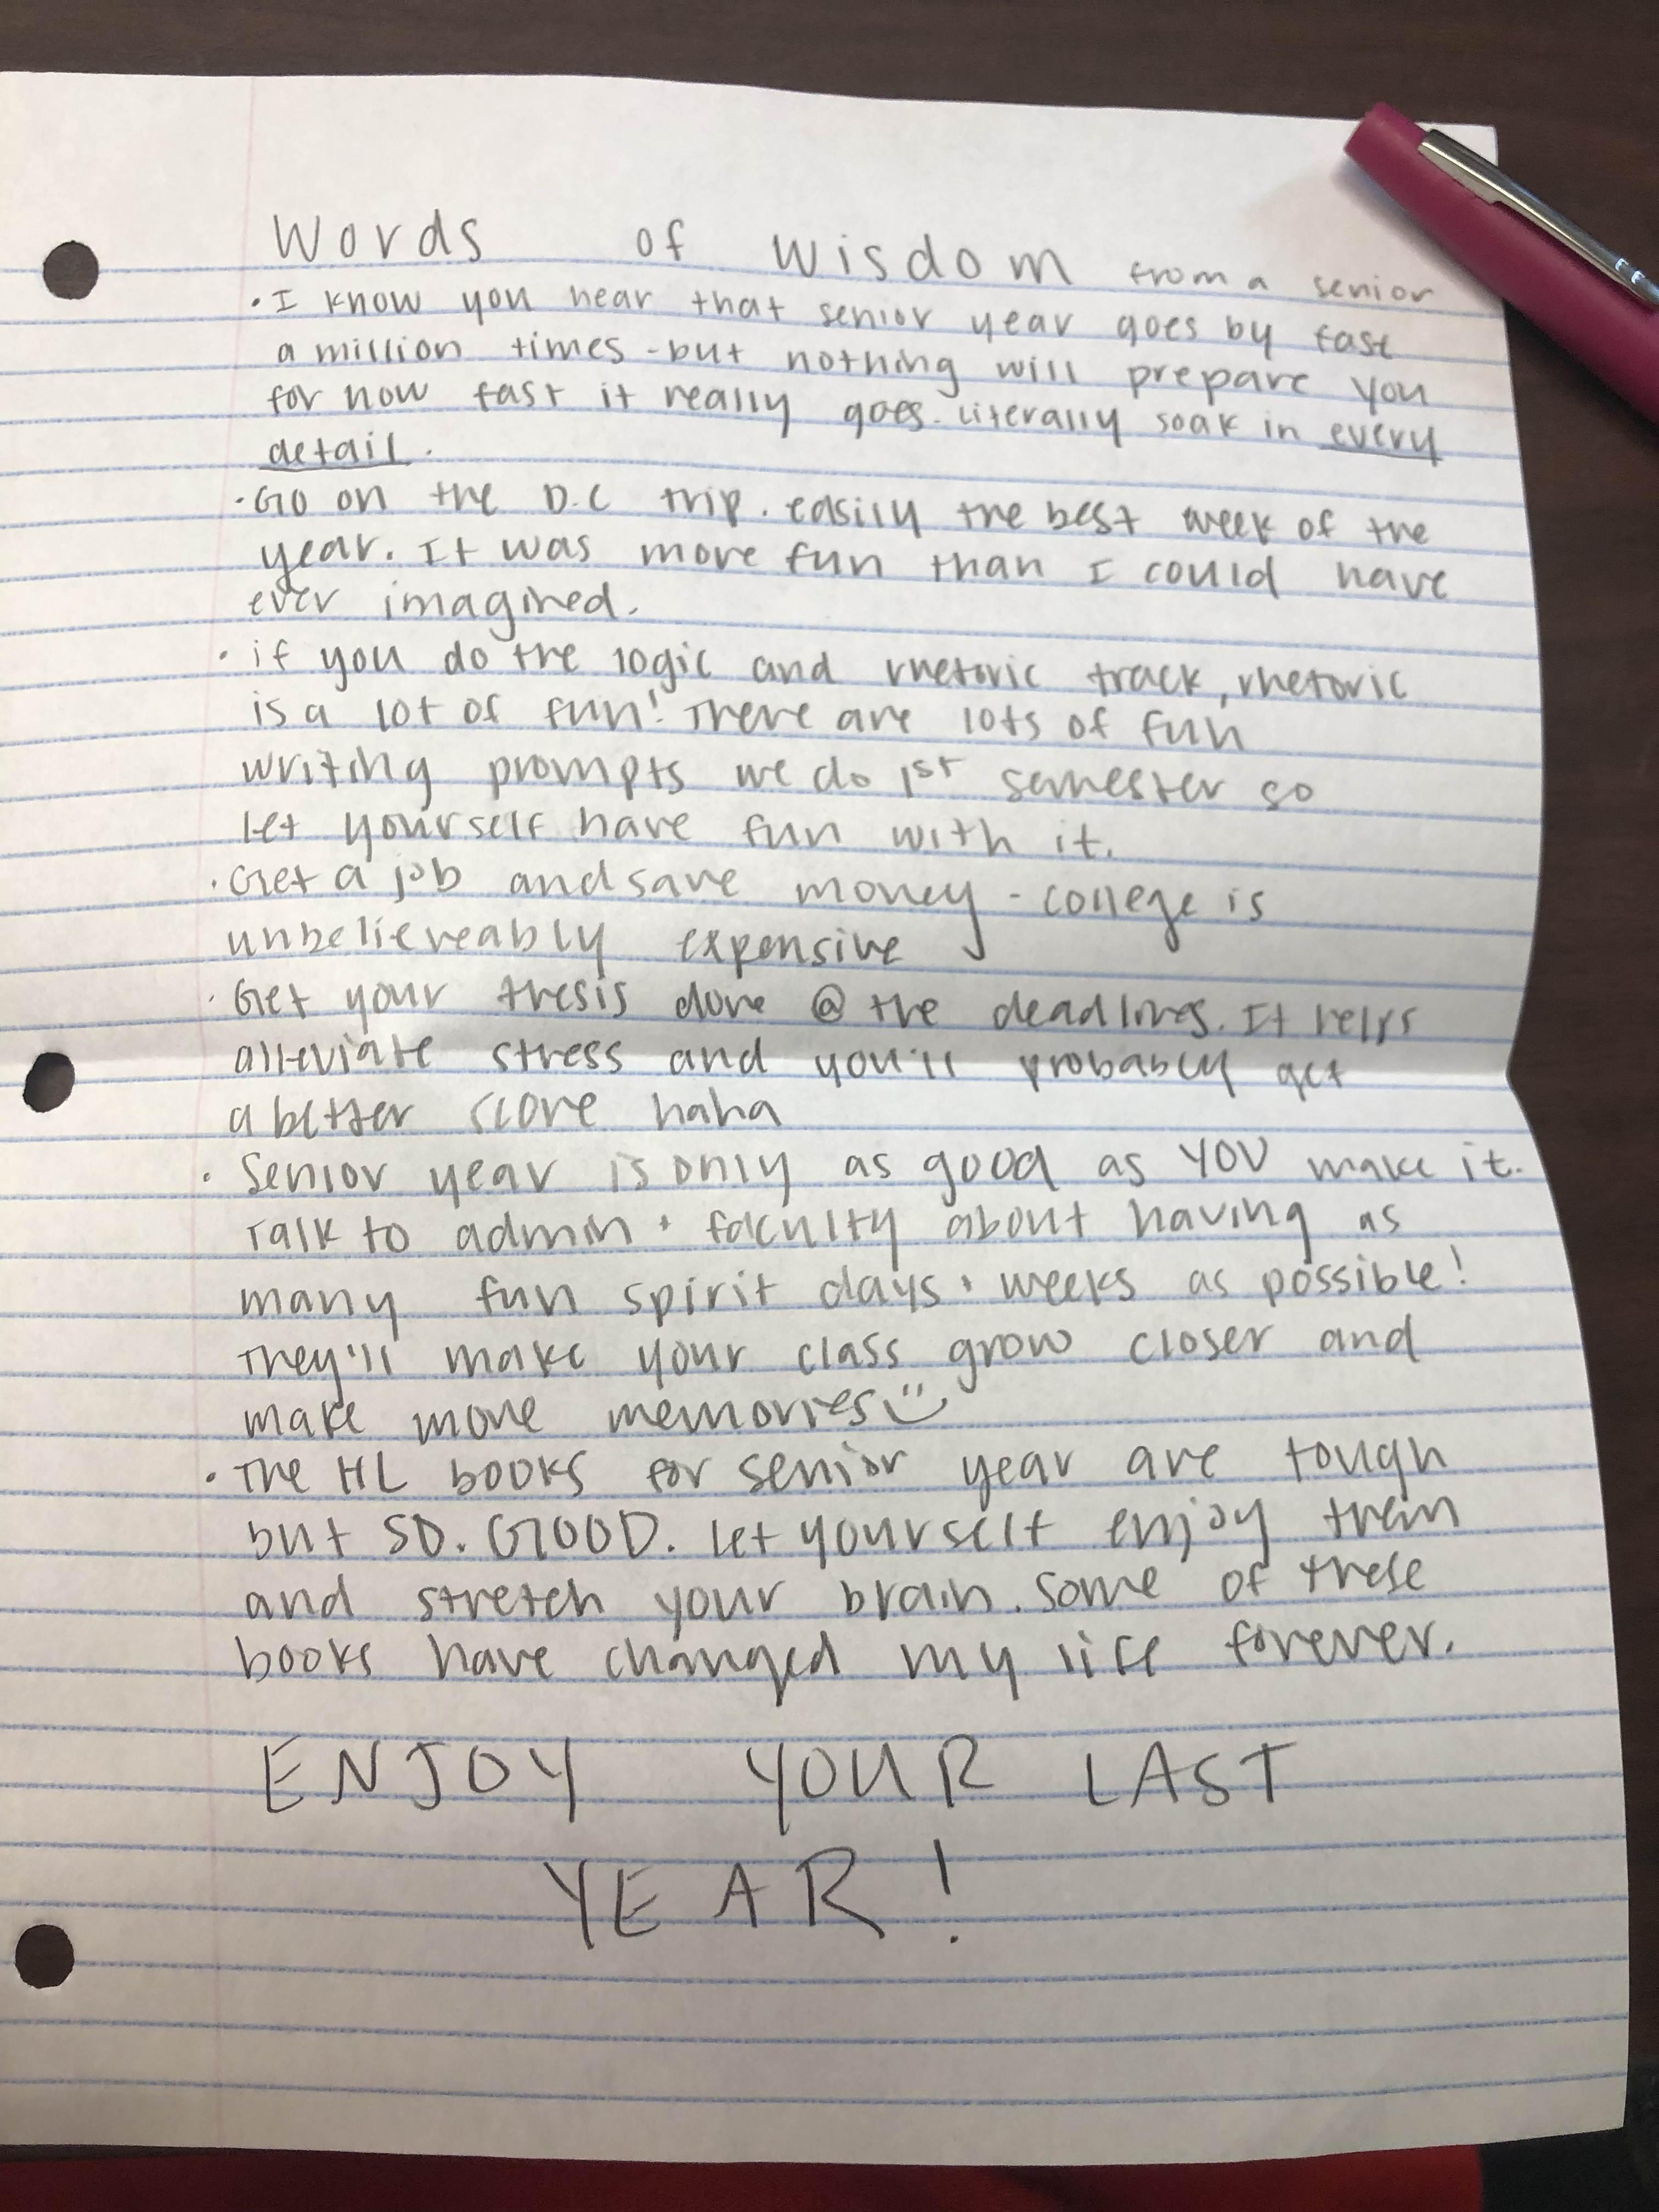 Words of Wisdom from a senior
• I know you hear that senior year goes by fast
a million times - but nothing will prepare you
for how fast it really goes. Literally soak in every
detail.
• Go on the D.C trip. easily the best week of the
year. It was more fun than I could have
ever imagined.
• if you do the logic and rhetoric track, rhetoric
is a lot of fun! There are lots of fun
writing prompts we do 1st semester so
let yourself have fun with it.
• Get a job and save money - college is
unbelieveably expensive
• Get your thesis done @ the deadlines. It helps
alleviate stress and you'll probably get
a better score haha
• Senior year is only as good as YOU make it.
Talk to admin + faculty about having as
many fun spirit days + weeks as possible!
They'll make your class grow closer and
make more memories
• The HL books for senior year are tough
but SO. GOOD. Let yourself enjoy them
and stretch your brain. Some of these
books have changed my life forever.
ENJOY YOUR LAST
YEAR!